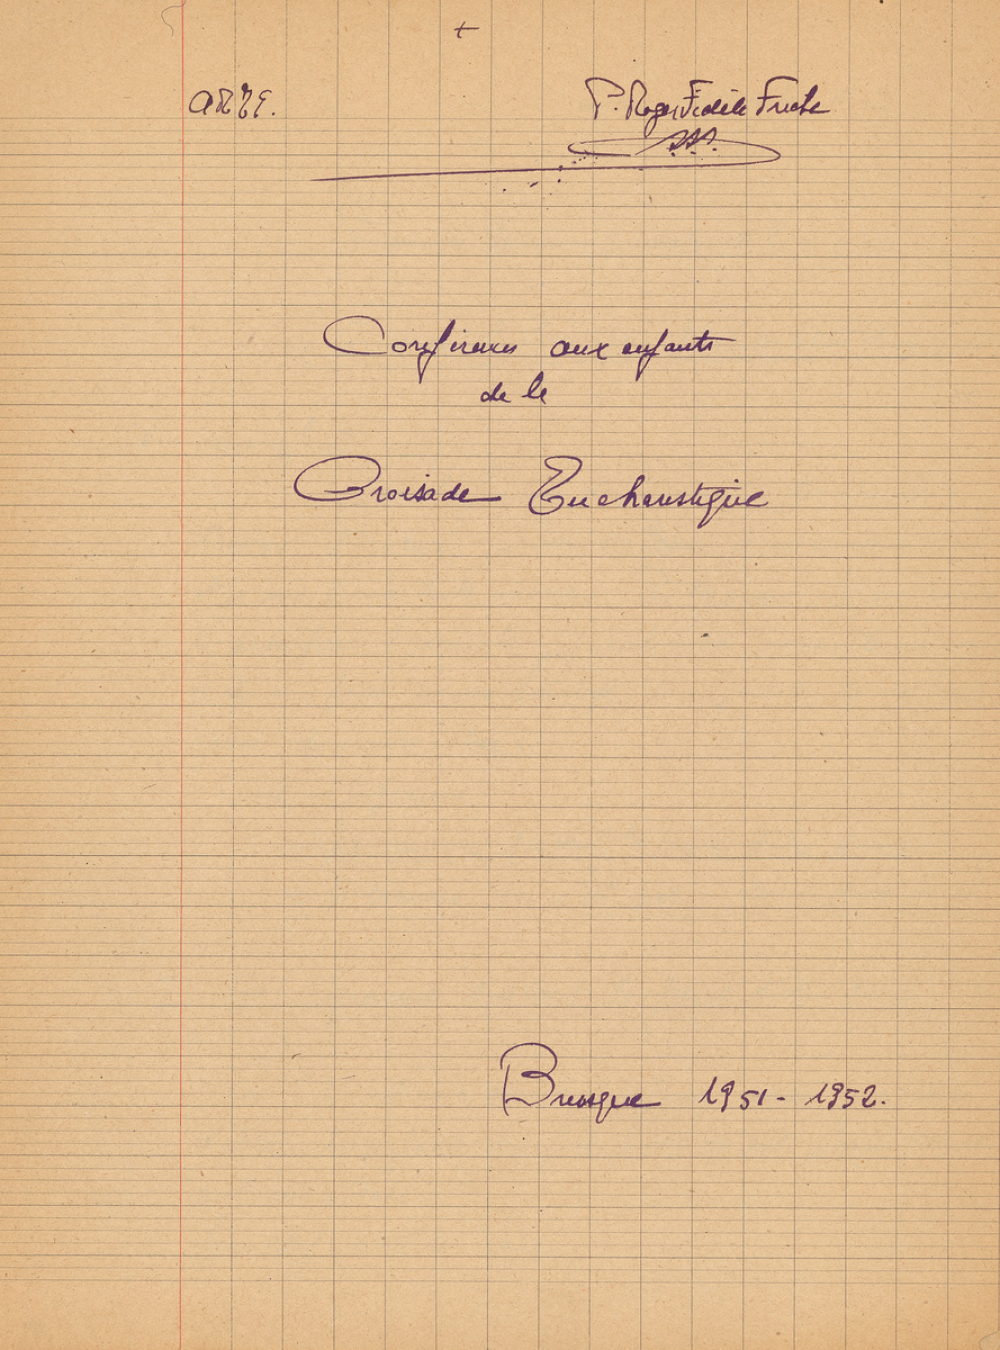 +
P. Roger Fidèle
Conférences aux enfants
de la
Croisade Eucharistique
1951 - 1952.